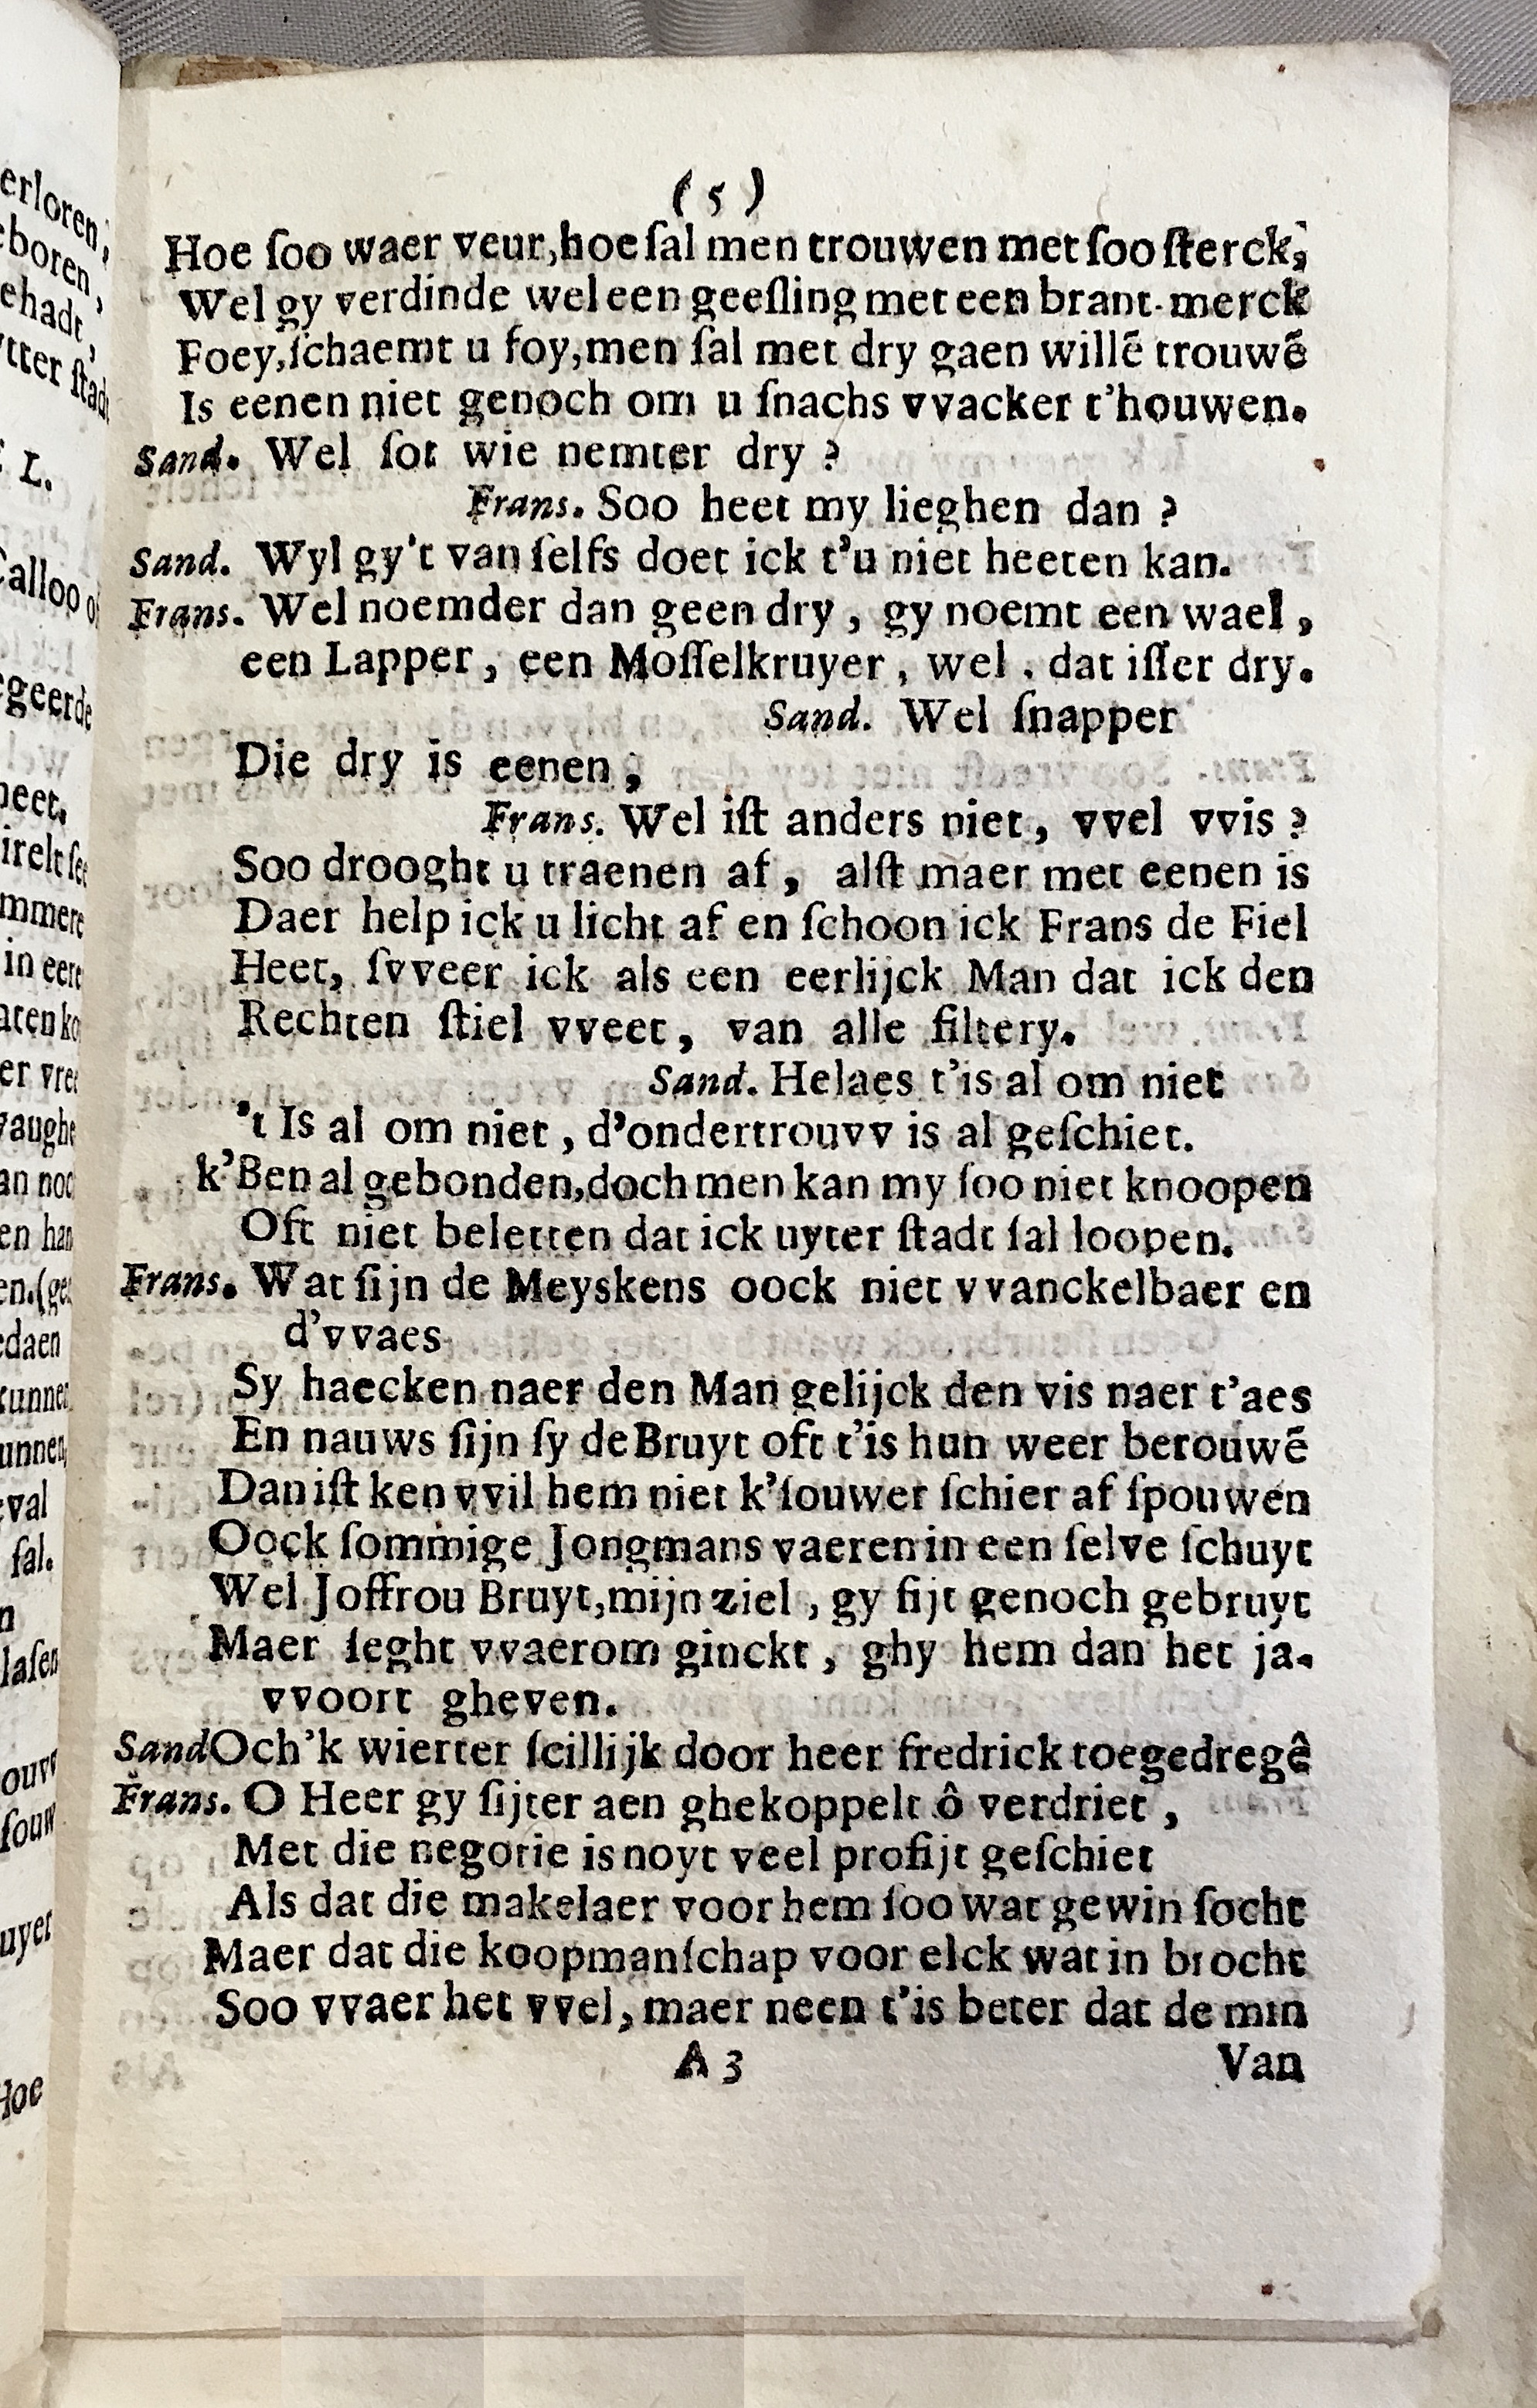 ( 5 )
Hoe ſoo waer veur, hoe ſal men trouwen met ſoo ſterck,
Wel gy verdinde wel een geeſling met een brant-merck
Foey, ſchaemt u foy, men ſal met dry gaen willē trouwē
Is eenen niet genoch om u ſnachs vvacker t'houwen.
Sand. Wel ſot wie nemter dry ?
Frans. Soo heet my lieghen dan ?
Sand. Wyl gy't van ſelfs doet ick t'u niet heeten kan.
Frans. Wel noemder dan geen dry , gy noemt een wael ,
een Lapper , een Moſſelkruyer , wel , dat iſſer dry.
Sand. Wel ſnapper
Die dry is eenen ,
Frans. Wel iſt anders niet , vvel vvis ?
Soo drooght u traenen af , alſt maer met eenen is
Daer help ick u licht af en ſchoon ick Frans de Fiel
Heet, ſvveer ick als een eerlijck Man dat ick den
Rechten ſtiel vveet , van alle filtery.
Sand. Helaes t'is al om niet
't Is al om niet , d'ondertrouvv is al geſchiet.
k'Ben al gebonden, doch men kan my ſoo niet knoopen
Oft niet beletten dat ick uyter ſtadt ſal loopen.
Frans. Wat ſijn de Meyskens oock niet vvanckelbaer en
d'vvaes
Sy haecken naer den Man gelijck den vis naer t'aes
En nauws ſijn ſy de Bruyt oft t'is hun weer berouwē
Dan iſt ken vvil hem niet k'ſouwer ſchier af ſpouwen
Oock ſommige Jongmans vaeren in een ſelve ſchuyt
Wel Joffrou Bruyt, mijn ziel , gy ſijt genoch gebruyt
Maer ſeght vvaerom ginckt , ghy hem dan het ja-
vvoort gheven.
Sand Och'k wierter ſcillijk door heer fredrick toegedregê
Frans. O Heer gy ſijter aen ghekoppelt ô verdriet ,
Met die negotie is noyt veel profijt geſchiet
Als dat die makelaer voor hem ſoo wat gewin ſocht
Maer dat die koopmanſchap voor elck wat in brocht
Soo vvaer het vvel, maer neen t'is beter dat de min
A 3 Van